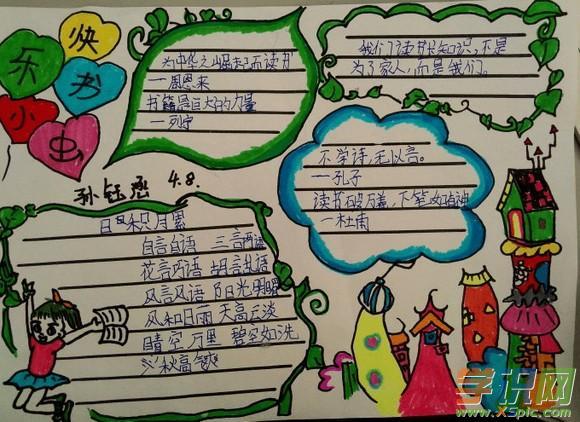 快
乐
书
小
虫
为中华之崛起而读书
一周恩来
书籍是巨大的力量
一列宁
我们读书长知识,不是
为了家人,而是我们。
不学诗,无以言。
一孔子
读书破万卷,下笔如有神
一杜甫
孙钰
4.8.
日积月累
自言自语 三言两语
花言巧语 胡言乱语
风言风语 阳光明媚
风和日丽 天高云淡
晴空万里 碧空如洗
秋高气爽
学识网
www.XSpic.com